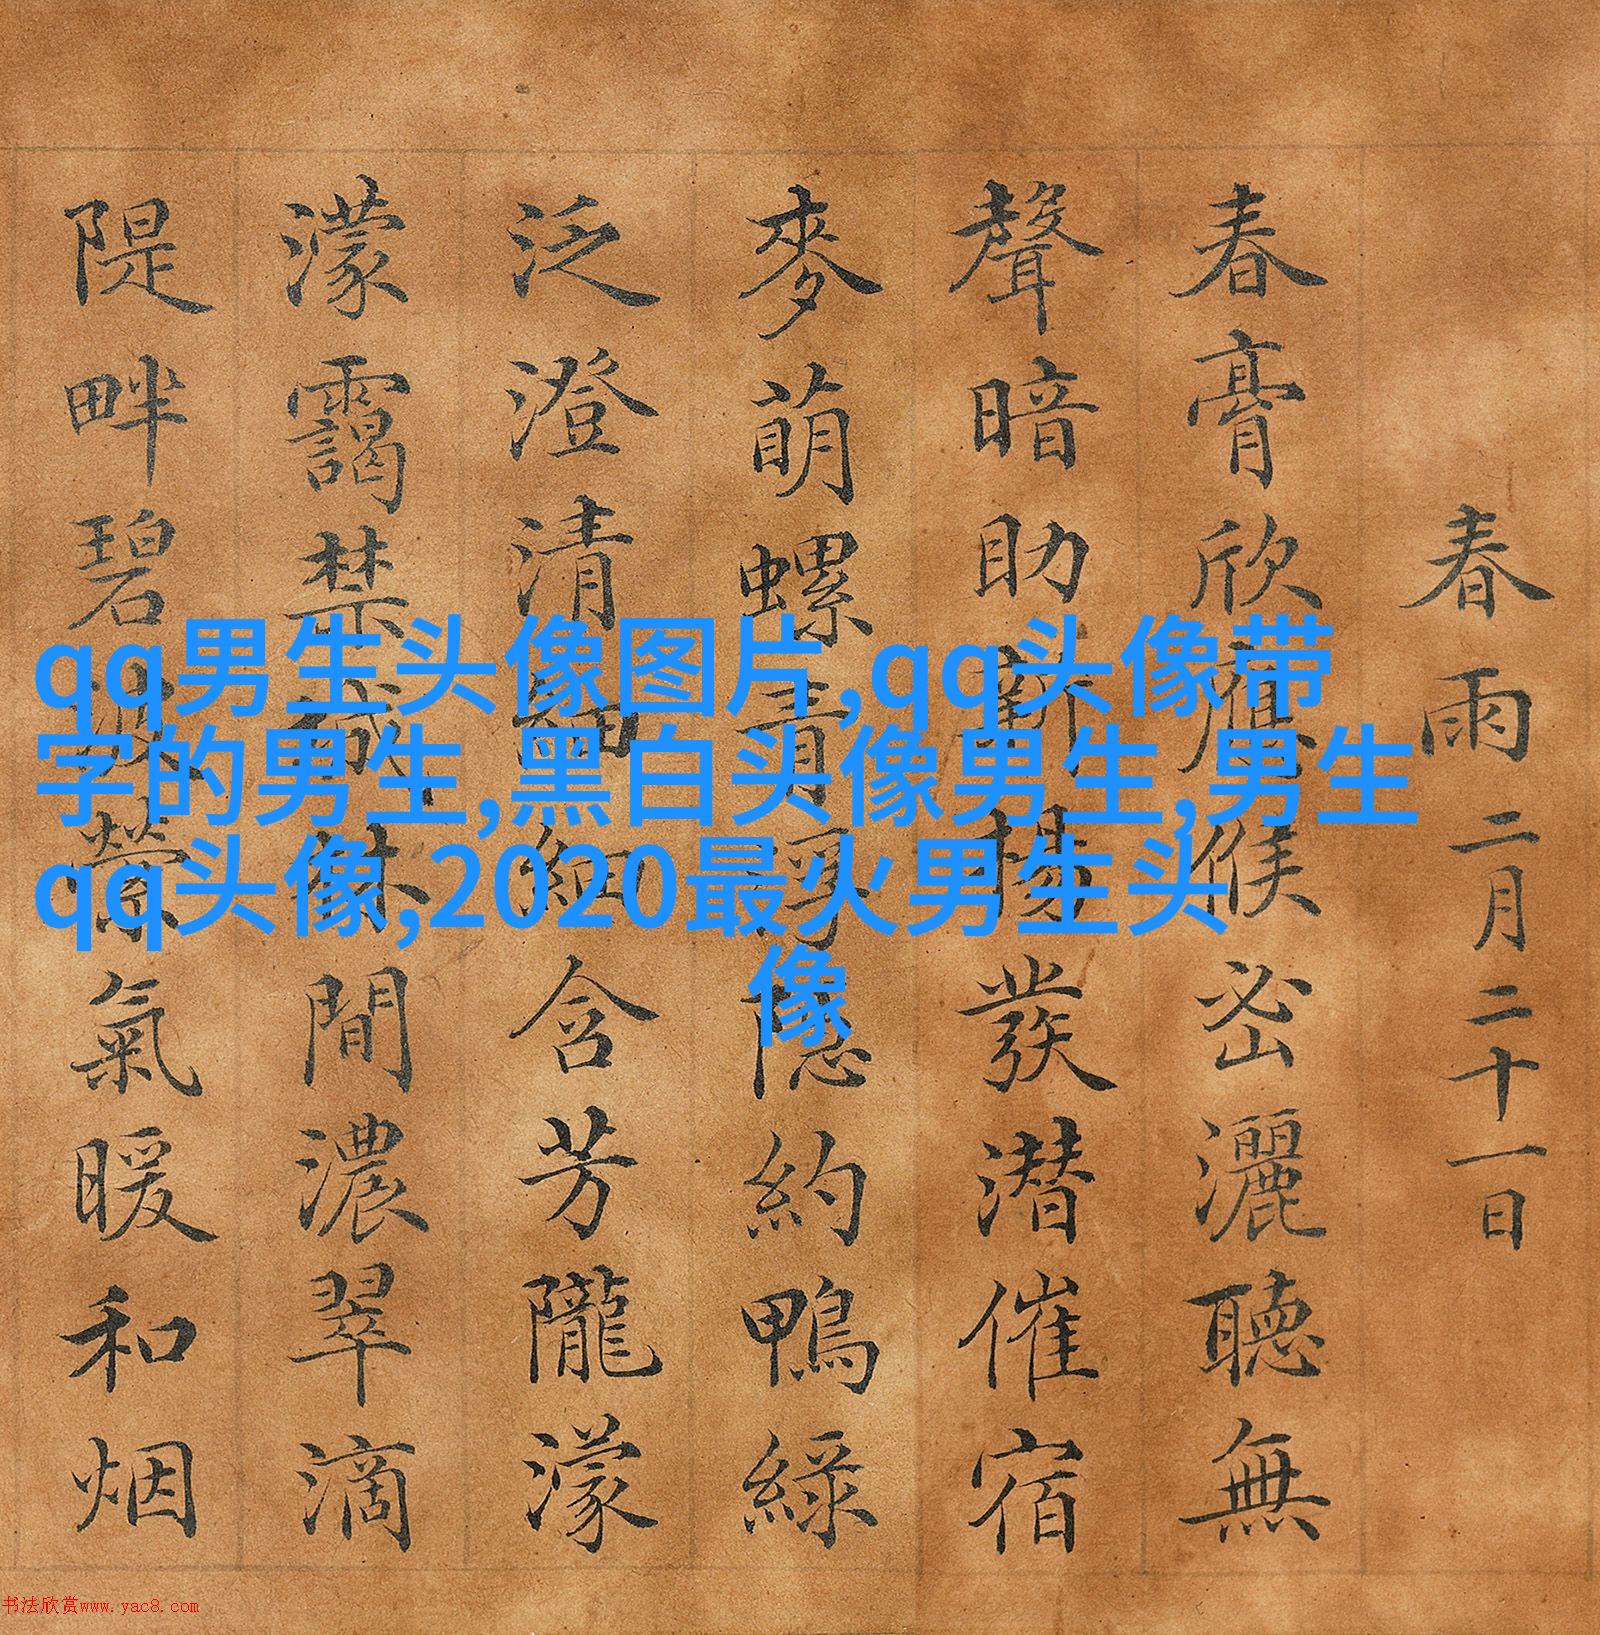 春雨 二月二十一日
春膏欣應候密灑聽無
聲暗助新發潜催宿
麥萌螺青隱約鴨綠
泛澄清細含芳隴濛
濛靄禁城林間濃翠滴
隄畔碧波縈氣暖和烟
qq男生头像图片,qq头像带
字的男生,黑白头像男生,男生
qq头像,2020最火男生头
像
书法欣赏www.yac8.com